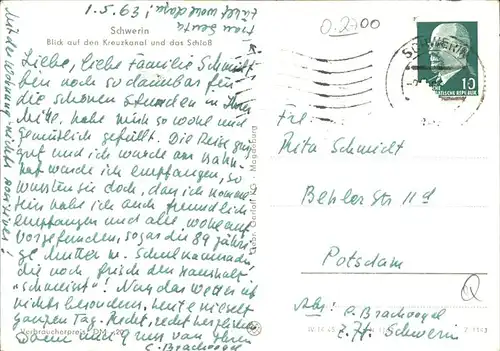 1.5.63!
Schwerin
Blick auf den Kreuzkanal und das Schloß
Liebe, liebe Familie Schmidt
bin noch so dankbar für
die schönen Stunden in Ihrer
Mitte, habe mich so wohl und
gemütlich gefühlt. Die Reise ging
gut und ich wurde am Bahn-
hof wurde ich empfangen, so
wussten sie doch, daß ich komme
hier habe ich auch freundlich
empfangen und alle wohlauf
vorgefunden, sogar die 89 jähri-
ge Mutter v. Schulkameradin
die noch frisch den Haushalt
"schmeisst"! Nun das Wetter ist
nichts besonderes, heute nieselt
ganzen Tag. Recht, recht herzlichen
Dank und Gruss von Ihrer
C. Brachvogel
Mit der Wohnung nichts positives!
Verbraucherpreis DM -,20
Gebr. Garloff KG · Magdeburg
0.2700
SCHWERIN
10
DEUTSCHE
DEMOKRATISCHE REPUBLIK
Frl.
Rita Schmidt
Behlerstr 11d
Potsdam
Abs: C. Brachvogel
z.Zt. Schwerin